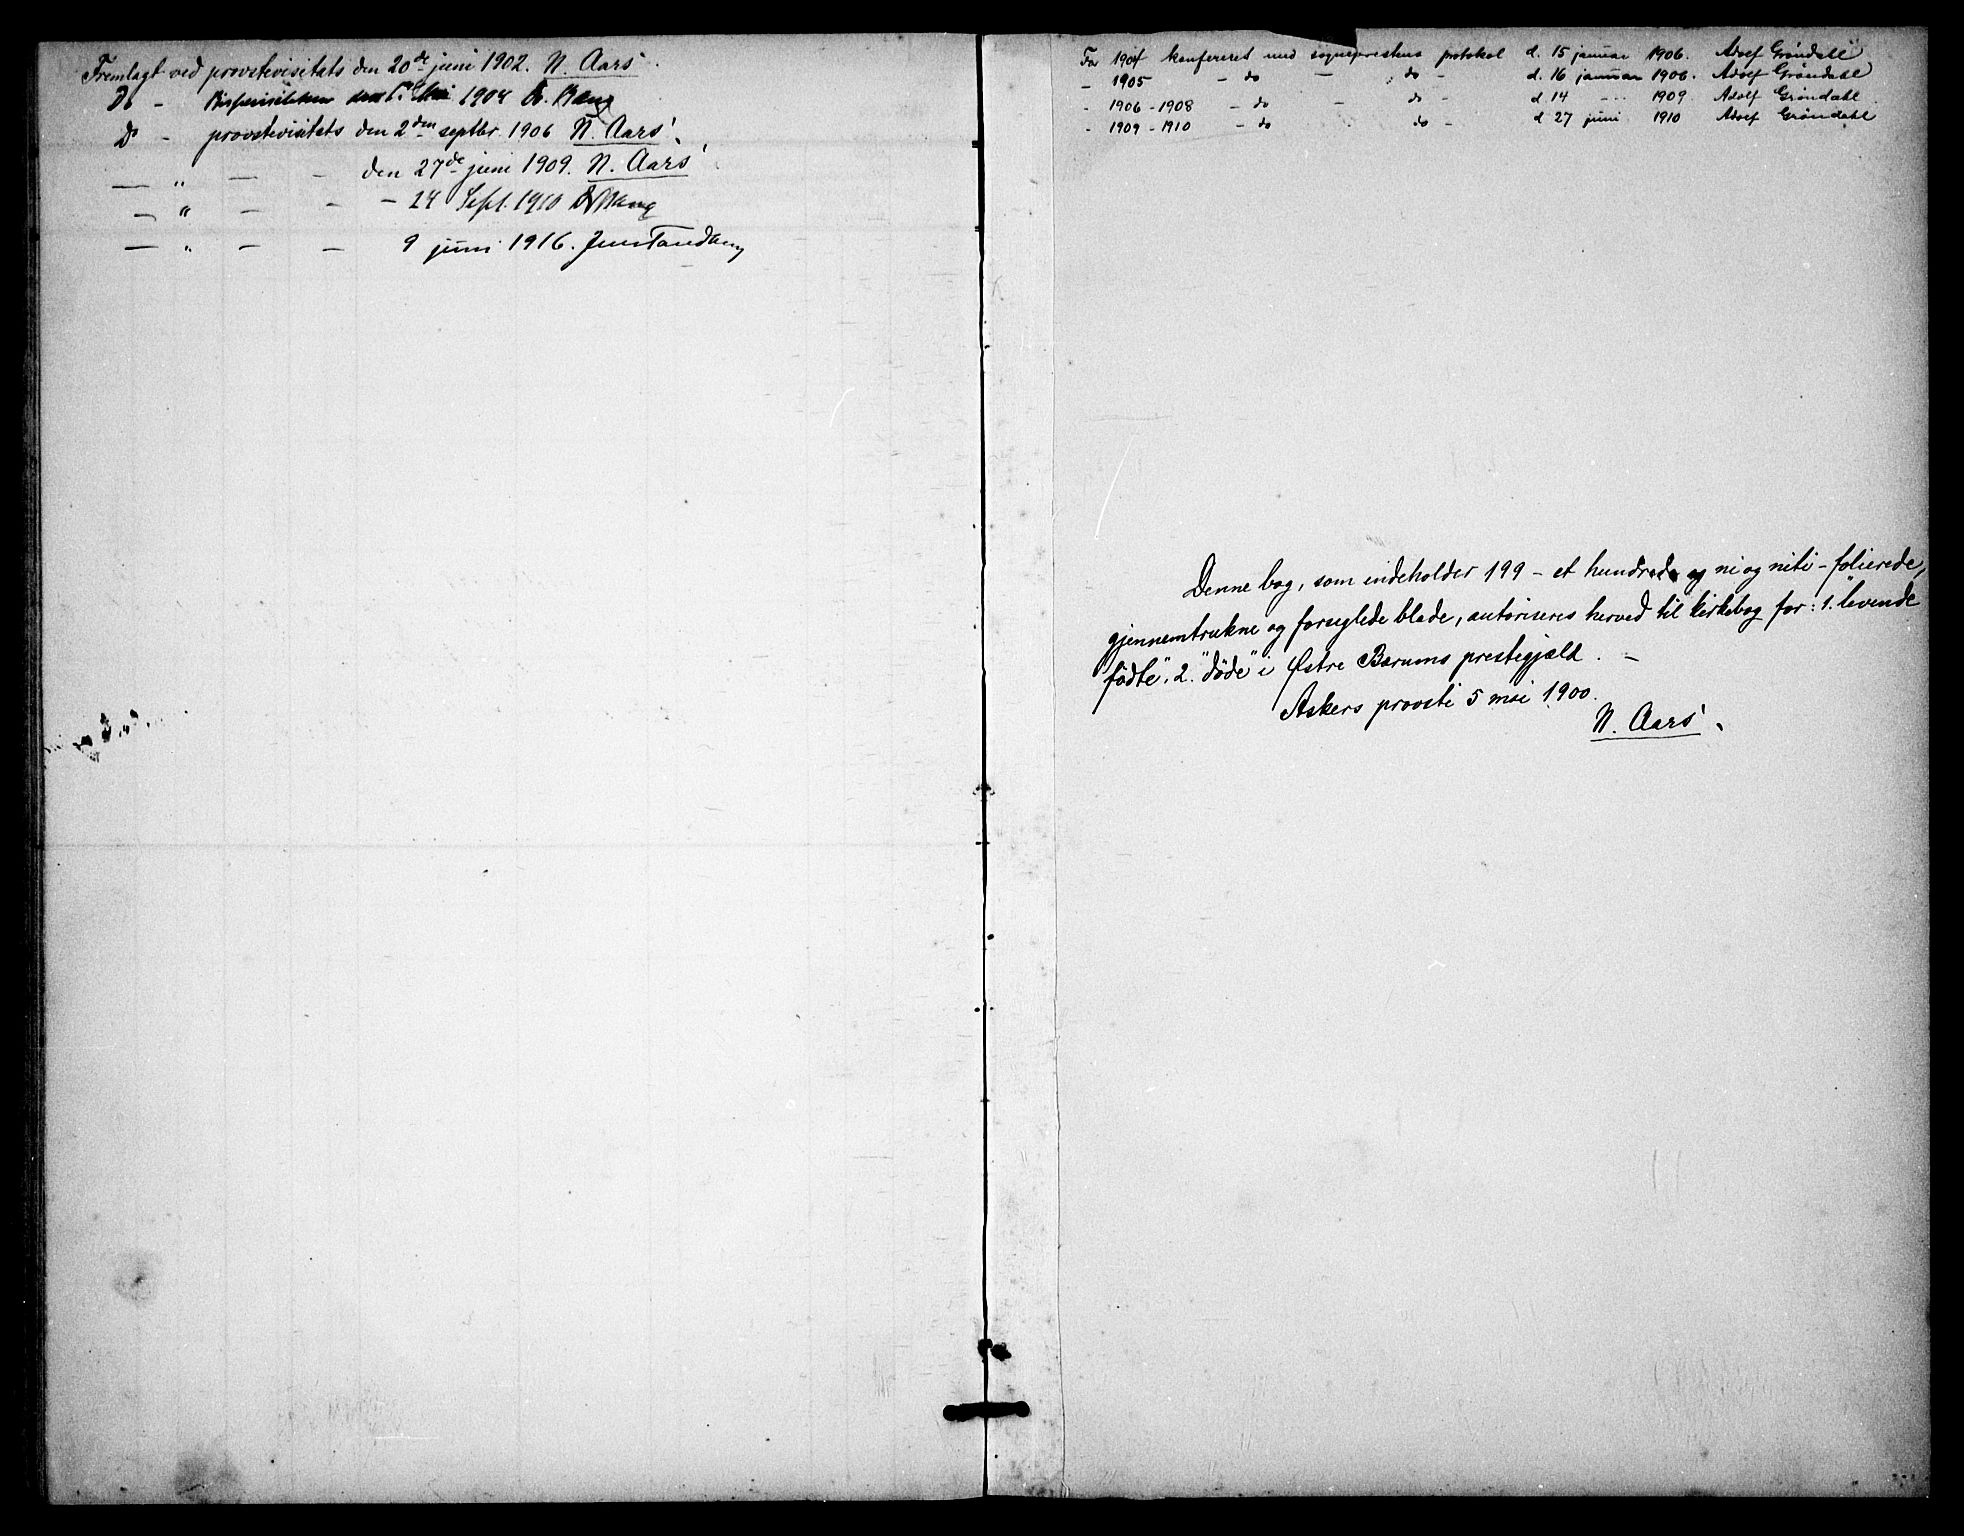 Fremlagt ved provstevisitats den 20de juni 1902. N. Aars.
Do - Bispevisitatsen 1904 A. Bang
Do - provstevisitats den 2den septbr. 1906 N. Aars.
— " — - den 27de juni 1909. N. Aars
— " — - - 24 Sept. 1910 Bang
— " — — 9 juni 1916. Jens Tandberg
For 1904 konfereret med sogneprestens protokol d. 15 januar 1906. Adolf Grøndahl
- 1905 - do - do - d. 16 januar 1906. Adolf Grøndahl
- 1906-1908 - do - do - d 14 - 1909 Adolf Grøndahl
- 1909-1910 - do do - d 27 juni 1910 Adolf Grøndahl
Denne bog, som indeholder 199 - et hundrede og ni og niti - folierede,
gjennemtrukne og forseglede blade, autoriseres herved til kirkebog for: 1. "levende
fødte", 2. "døde" i Østre Bærums prestegjæld. -
Askers provsti 5 mai 1900.
N. Aars.